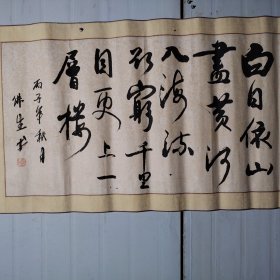 白日依山
盡黄河
入海流
欲窮千里
目更上一
層樓
丙子年秋月